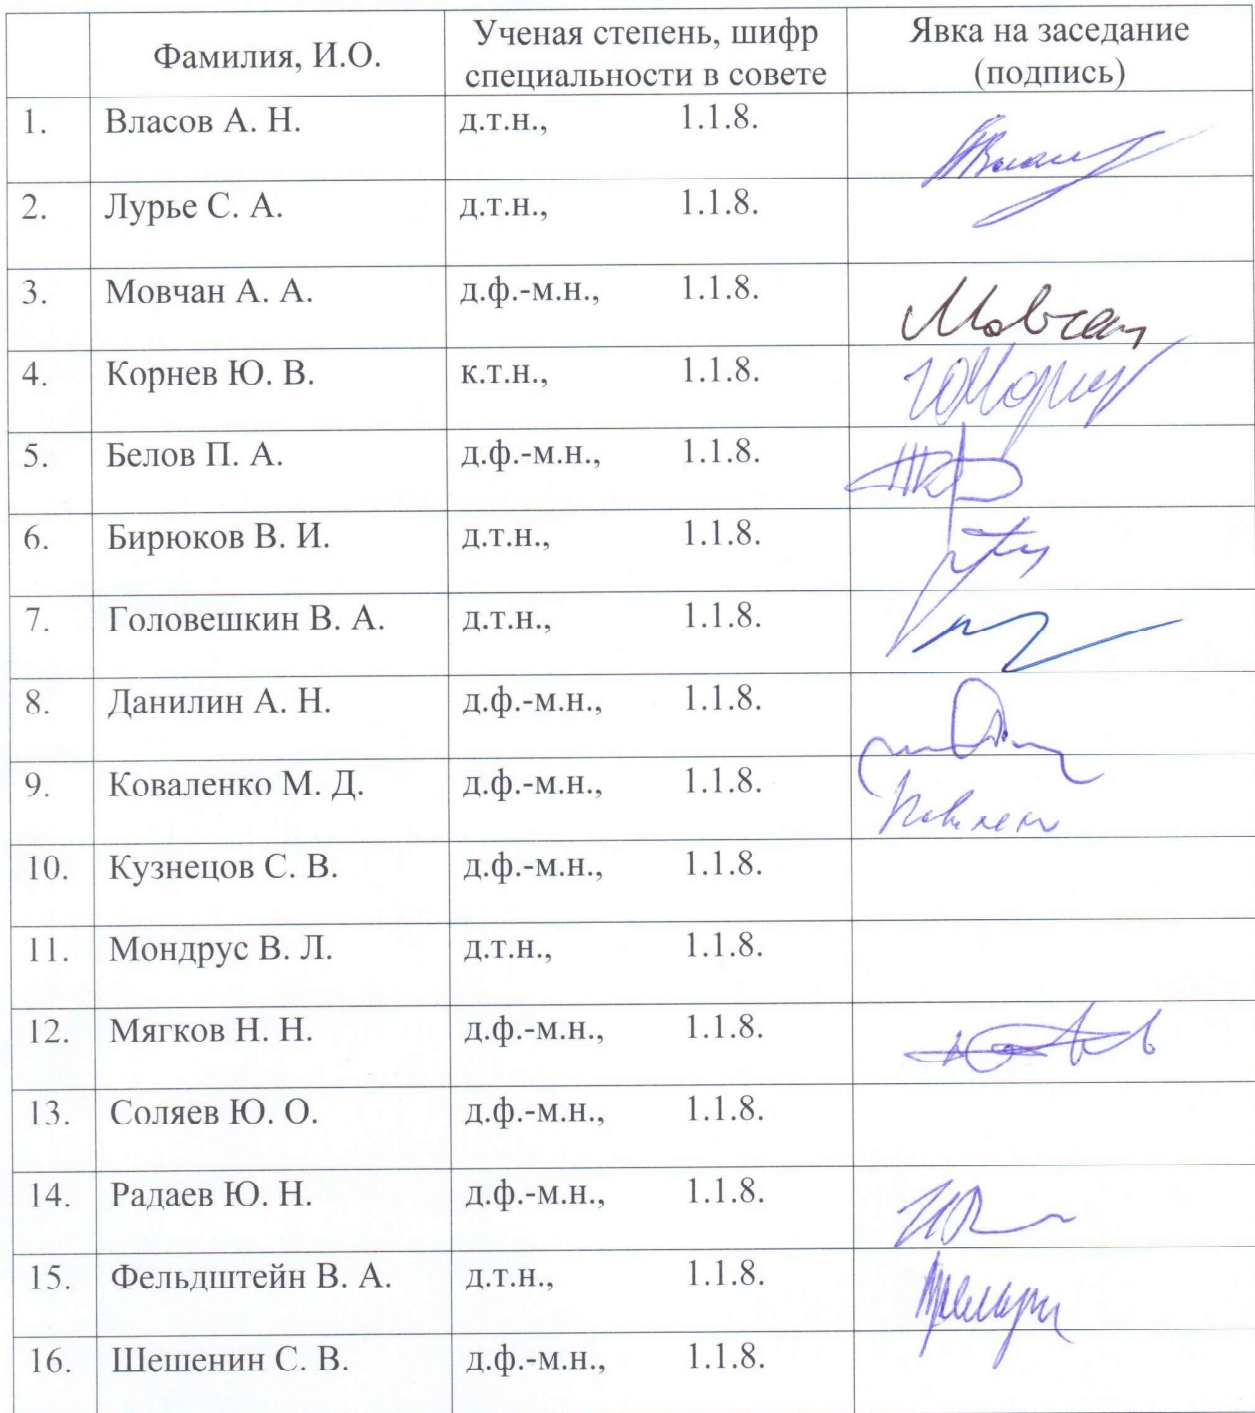 Фамилия, И.О.
Ученая степень, шифр
специальности в совете
Явка на заседание
(подпись)
1. Власов А. Н. д.т.н., 1.1.8.
2. Лурье С. А. д.т.н., 1.1.8.
3. Мовчан А. А. д.ф.-м.н., 1.1.8. Мовчан
4. Корнев Ю. В. к.т.н., 1.1.8.
5. Белов П. А. д.ф.-м.н., 1.1.8.
6. Бирюков В. И. д.т.н., 1.1.8.
7. Головешкин В. А. д.т.н., 1.1.8.
8. Данилин А. Н. д.ф.-м.н., 1.1.8.
9. Коваленко М. Д. д.ф.-м.н., 1.1.8.
10. Кузнецов С. В. д.ф.-м.н., 1.1.8.
11. Мондрус В. Л. д.т.н., 1.1.8.
12. Мягков Н. Н. д.ф.-м.н., 1.1.8.
13. Соляев Ю. О. д.ф.-м.н., 1.1.8.
14. Радаев Ю. Н. д.ф.-м.н., 1.1.8.
15. Фельдштейн В. А. д.т.н., 1.1.8.
16. Шешенин С. В. д.ф.-м.н., 1.1.8.